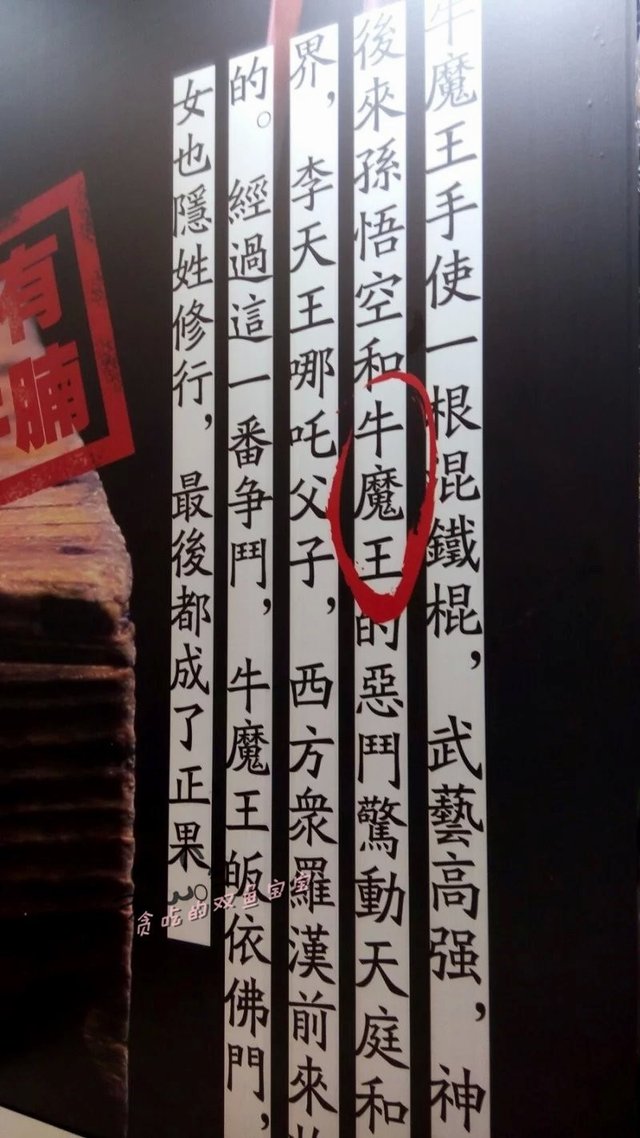 牛魔王手使一根混鐵棍，武藝高强，神
後來孫悟空和牛魔王的惡鬥驚動天庭和
界，李天王哪吒父子，西方衆羅漢前來
的。經過這一番争鬥，牛魔王皈依佛門，
女也隱姓修行，最後都成了正果。
有
腩
贪吃的双鱼宝宝